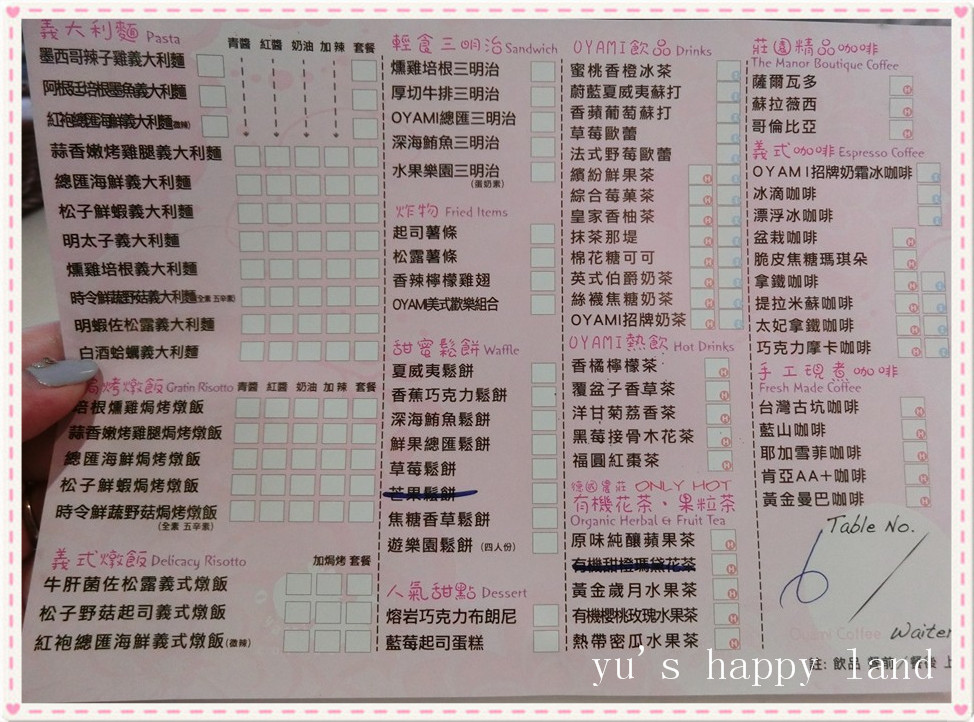 義大利麵 Pasta
青醬 紅醬 奶油 加辣 套餐
墨西哥辣子雞義大利麵
阿根廷培根墨魚義大利麵
紅袍總匯海鮮義大利麵(微辣)
蒜香嫩烤雞腿義大利麵
總匯海鮮義大利麵
松子鮮蝦義大利麵
明太子義大利麵
燻雞培根義大利麵
時令鮮蔬野菇義大利麵(全素 五辛素)
明蝦佐松露義大利麵
白酒蛤蠣義大利麵
焗烤燉飯 Gratin Risotto 青醬 紅醬 奶油 加辣 套餐
培根燻雞焗烤燉飯
蒜香嫩烤雞腿焗烤燉飯
總匯海鮮焗烤燉飯
松子鮮蝦焗烤燉飯
時令鮮蔬野菇焗烤燉飯
(全素 五辛素)
義式燉飯 Delicacy Risotto 加焗烤 套餐
牛肝菌佐松露義式燉飯
松子野菇起司義式燉飯
紅袍總匯海鮮義式燉飯(微辣)
輕食三明治 Sandwich
燻雞培根三明治
厚切牛排三明治
OYAMI總匯三明治
深海鮪魚三明治
水果樂園三明治
(蛋奶素)
炸物 Fried Items
起司薯條
松露薯條
香辣檸檬雞翅
OYAMI美式歡樂組合
甜蜜鬆餅 Waffle
夏威夷鬆餅
香蕉巧克力鬆餅
深海鮪魚鬆餅
鮮果總匯鬆餅
草莓鬆餅
芒果鬆餅
焦糖香草鬆餅
遊樂園鬆餅 (四人份)
人氣甜點 Dessert
熔岩巧克力布朗尼
藍莓起司蛋糕
OYAMI飲品 Drinks
蜜桃香橙冰茶
蔚藍夏威夷蘇打
香蘋葡萄蘇打
草莓歐蕾
法式野莓歐蕾
繽紛鮮果茶
綜合莓菓茶
皇家香柚茶
抹茶那堤
棉花糖可可
英式伯爵奶茶
絲襪焦糖奶茶
OYAMI招牌奶茶
OYAMI熱飲 Hot Drinks
香橘檸檬茶
覆盆子香草茶
洋甘菊荔香茶
黑莓接骨木花茶
福圓紅棗茶
德國農莊 ONLY HOT
有機花茶、果粒茶
Organic Herbal & Fruit Tea
原味純釀蘋果茶
有機甜橙瑪黛花茶
黃金歲月水果茶
有機櫻桃玫瑰水果茶
熱帶密瓜水果茶
莊園精品咖啡
The Manor Boutique Coffee
薩爾瓦多
蘇拉薇西
哥倫比亞
義式咖啡 Espresso Coffee
OYAMI招牌奶霜冰咖啡
冰滴咖啡
漂浮冰咖啡
盆栽咖啡
脆皮焦糖瑪琪朵
拿鐵咖啡
提拉米蘇咖啡
太妃拿鐵咖啡
巧克力摩卡咖啡
手工現煮咖啡
Fresh Made Coffee
台灣古坑咖啡
藍山咖啡
耶加雪菲咖啡
肯亞AA+咖啡
黃金曼巴咖啡
Table No.
Oyami Coffee Waiter
註: 飲品 餐前/餐後 上
yu's happy land